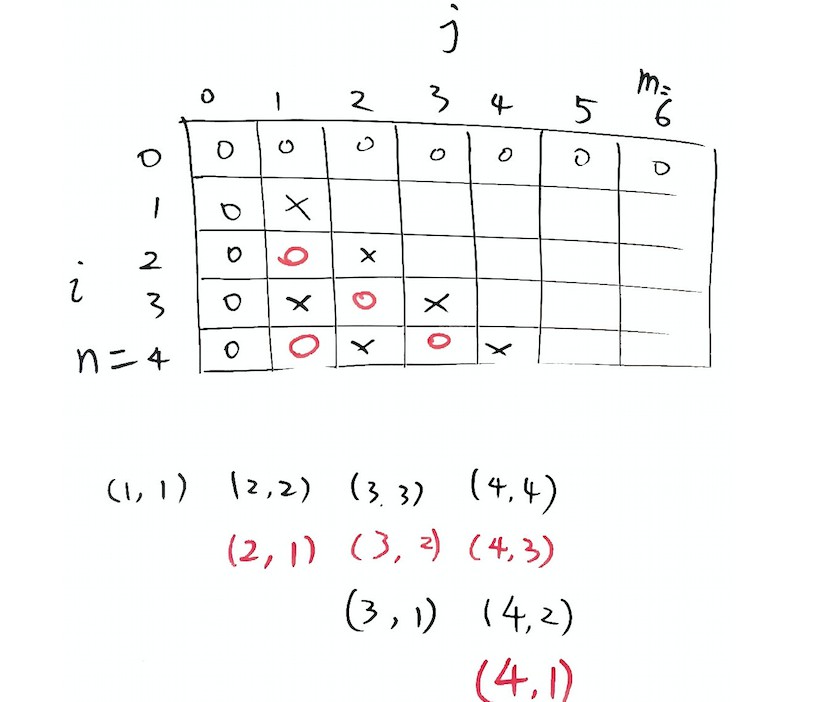 j
0 1 2 3 4 5 m=6
0 0 0 0 0 0 0 0
1 0 x
2 0 0 x
i 3 0 x 0 x
n=4 0 0 x 0 x
(1,1) (2,2) (3.3) (4,4)
(2,1) (3,2) (4,3)
(3,1) (4,2)
(4,1)